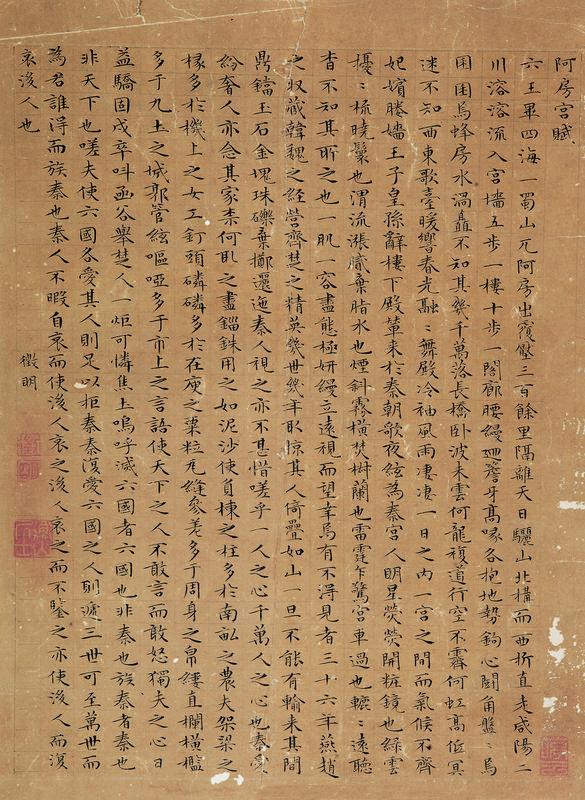 阿房宮賦
六王畢四海一蜀山兀阿房出覆壓三百餘里隔離天日驪山北構而西折直走咸陽二
川溶溶流入宮墻五步一樓十步一閣廊腰縵迴簷牙高啄各抱地勢鉤心鬬角盤〻焉
囷囷焉蜂房水渦矗不知其幾千萬落長橋卧波未雲何龍複道行空不霽何虹高低冥
迷不知西東歌臺暖響春光融〻舞殿冷袖風雨淒淒一日之内一宮之間而氣候不齊
妃嬪媵嬙王子皇孫辭樓下殿輦來於秦朝歌夜絃為秦宮人明星熒熒開粧鏡也綠雲
擾〻梳曉鬟也渭流漲膩棄脂水也煙斜霧橫焚椒蘭也雷霆乍驚宮車過也轆〻遠聽
杳不知其所之也一肌一容盡態極妍縵立遠視而望幸焉有不得見者三十六年燕趙
之收藏韓魏之經營齊楚之精英幾世幾年取掠其人倚疊如山一旦不能有輸來其間
鼎鐺玉石金塊珠礫棄擲邐迤秦人視之亦不甚惜嗟乎一人之心千萬人之心也秦愛
紛奢人亦念其家柰何取之盡錙銖用之如泥沙使負棟之柱多於南畝之農夫架梁之
椽多於機上之女工釘頭磷磷多於在庾之粟粒瓦縫參差多于周身之帛縷直欄橫檻
多于九土之城郭管絃嘔啞多于市上之言語使天下之人不敢言而敢怒獨夫之心日
益驕固戍卒叫函谷舉楚人一炬可憐焦土嗚呼滅六國者六國也非秦也族秦者秦也
非天下也嗟夫使六國各愛其人則足以拒秦秦復愛六國之人則遞三世可至萬世而
為君誰得而族秦也秦人不暇自哀而使後人哀之後人哀之而不鑒之亦使後人而復
哀後人也
徵明